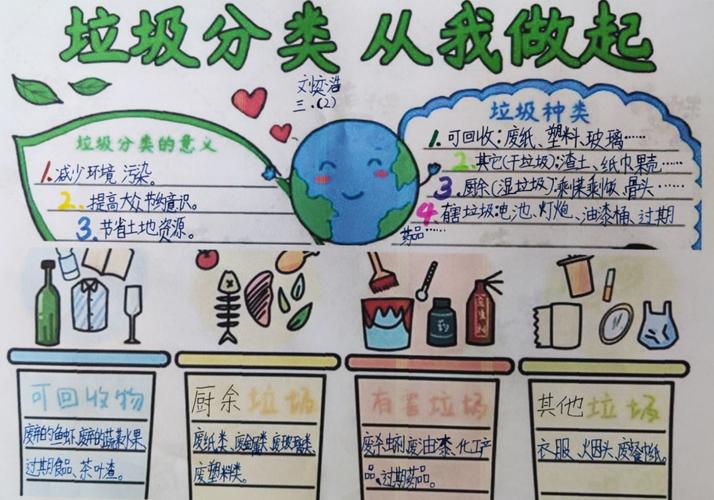 垃圾分类 从我做起
刘奕浩
三.(2)
垃圾分类的意义
1.减少环境污染。
2.提高大众节约意识。
3.节省土地资源。
垃圾种类
1.可回收:废纸、塑料、玻璃……
2.其它(干垃圾):渣土、纸巾果壳……
3.厨余(湿垃圾):剩菜剩饭、骨头……
4.有害垃圾:电池、灯炮、油漆桶、过期
药品……
药
可回收物
废弃的鱼虾、废弃的蔬菜水果、
过期食品、茶叶渣。
厨余垃圾
废纸类、废金属类、废玻璃类、
废塑料类。
有害垃圾
废杀虫剂、废油漆、化工产
品、过期药品。
其他垃圾
衣服、烟头、废餐巾纸。